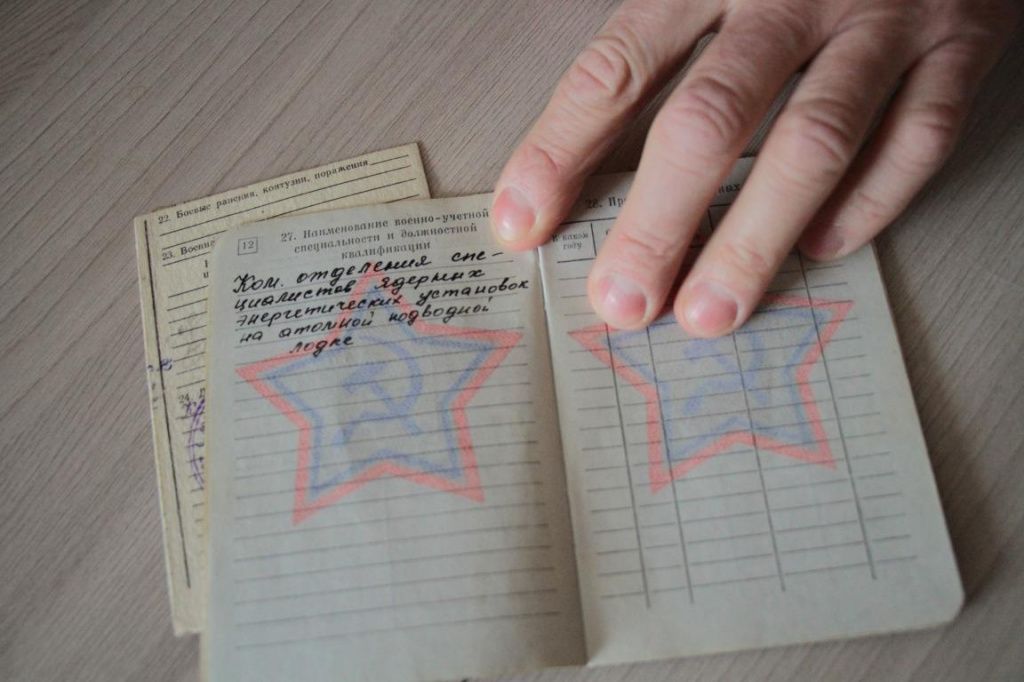 22. Боевые ранения, контузии, поражения
23.
12
27. Наименование военно-учетной
специальности и должностной
квалификации
Ком. отделения спе-
циалистов ядерных
энергетических установок
на атомной подводной
лодке
28.
В каком
году
24.